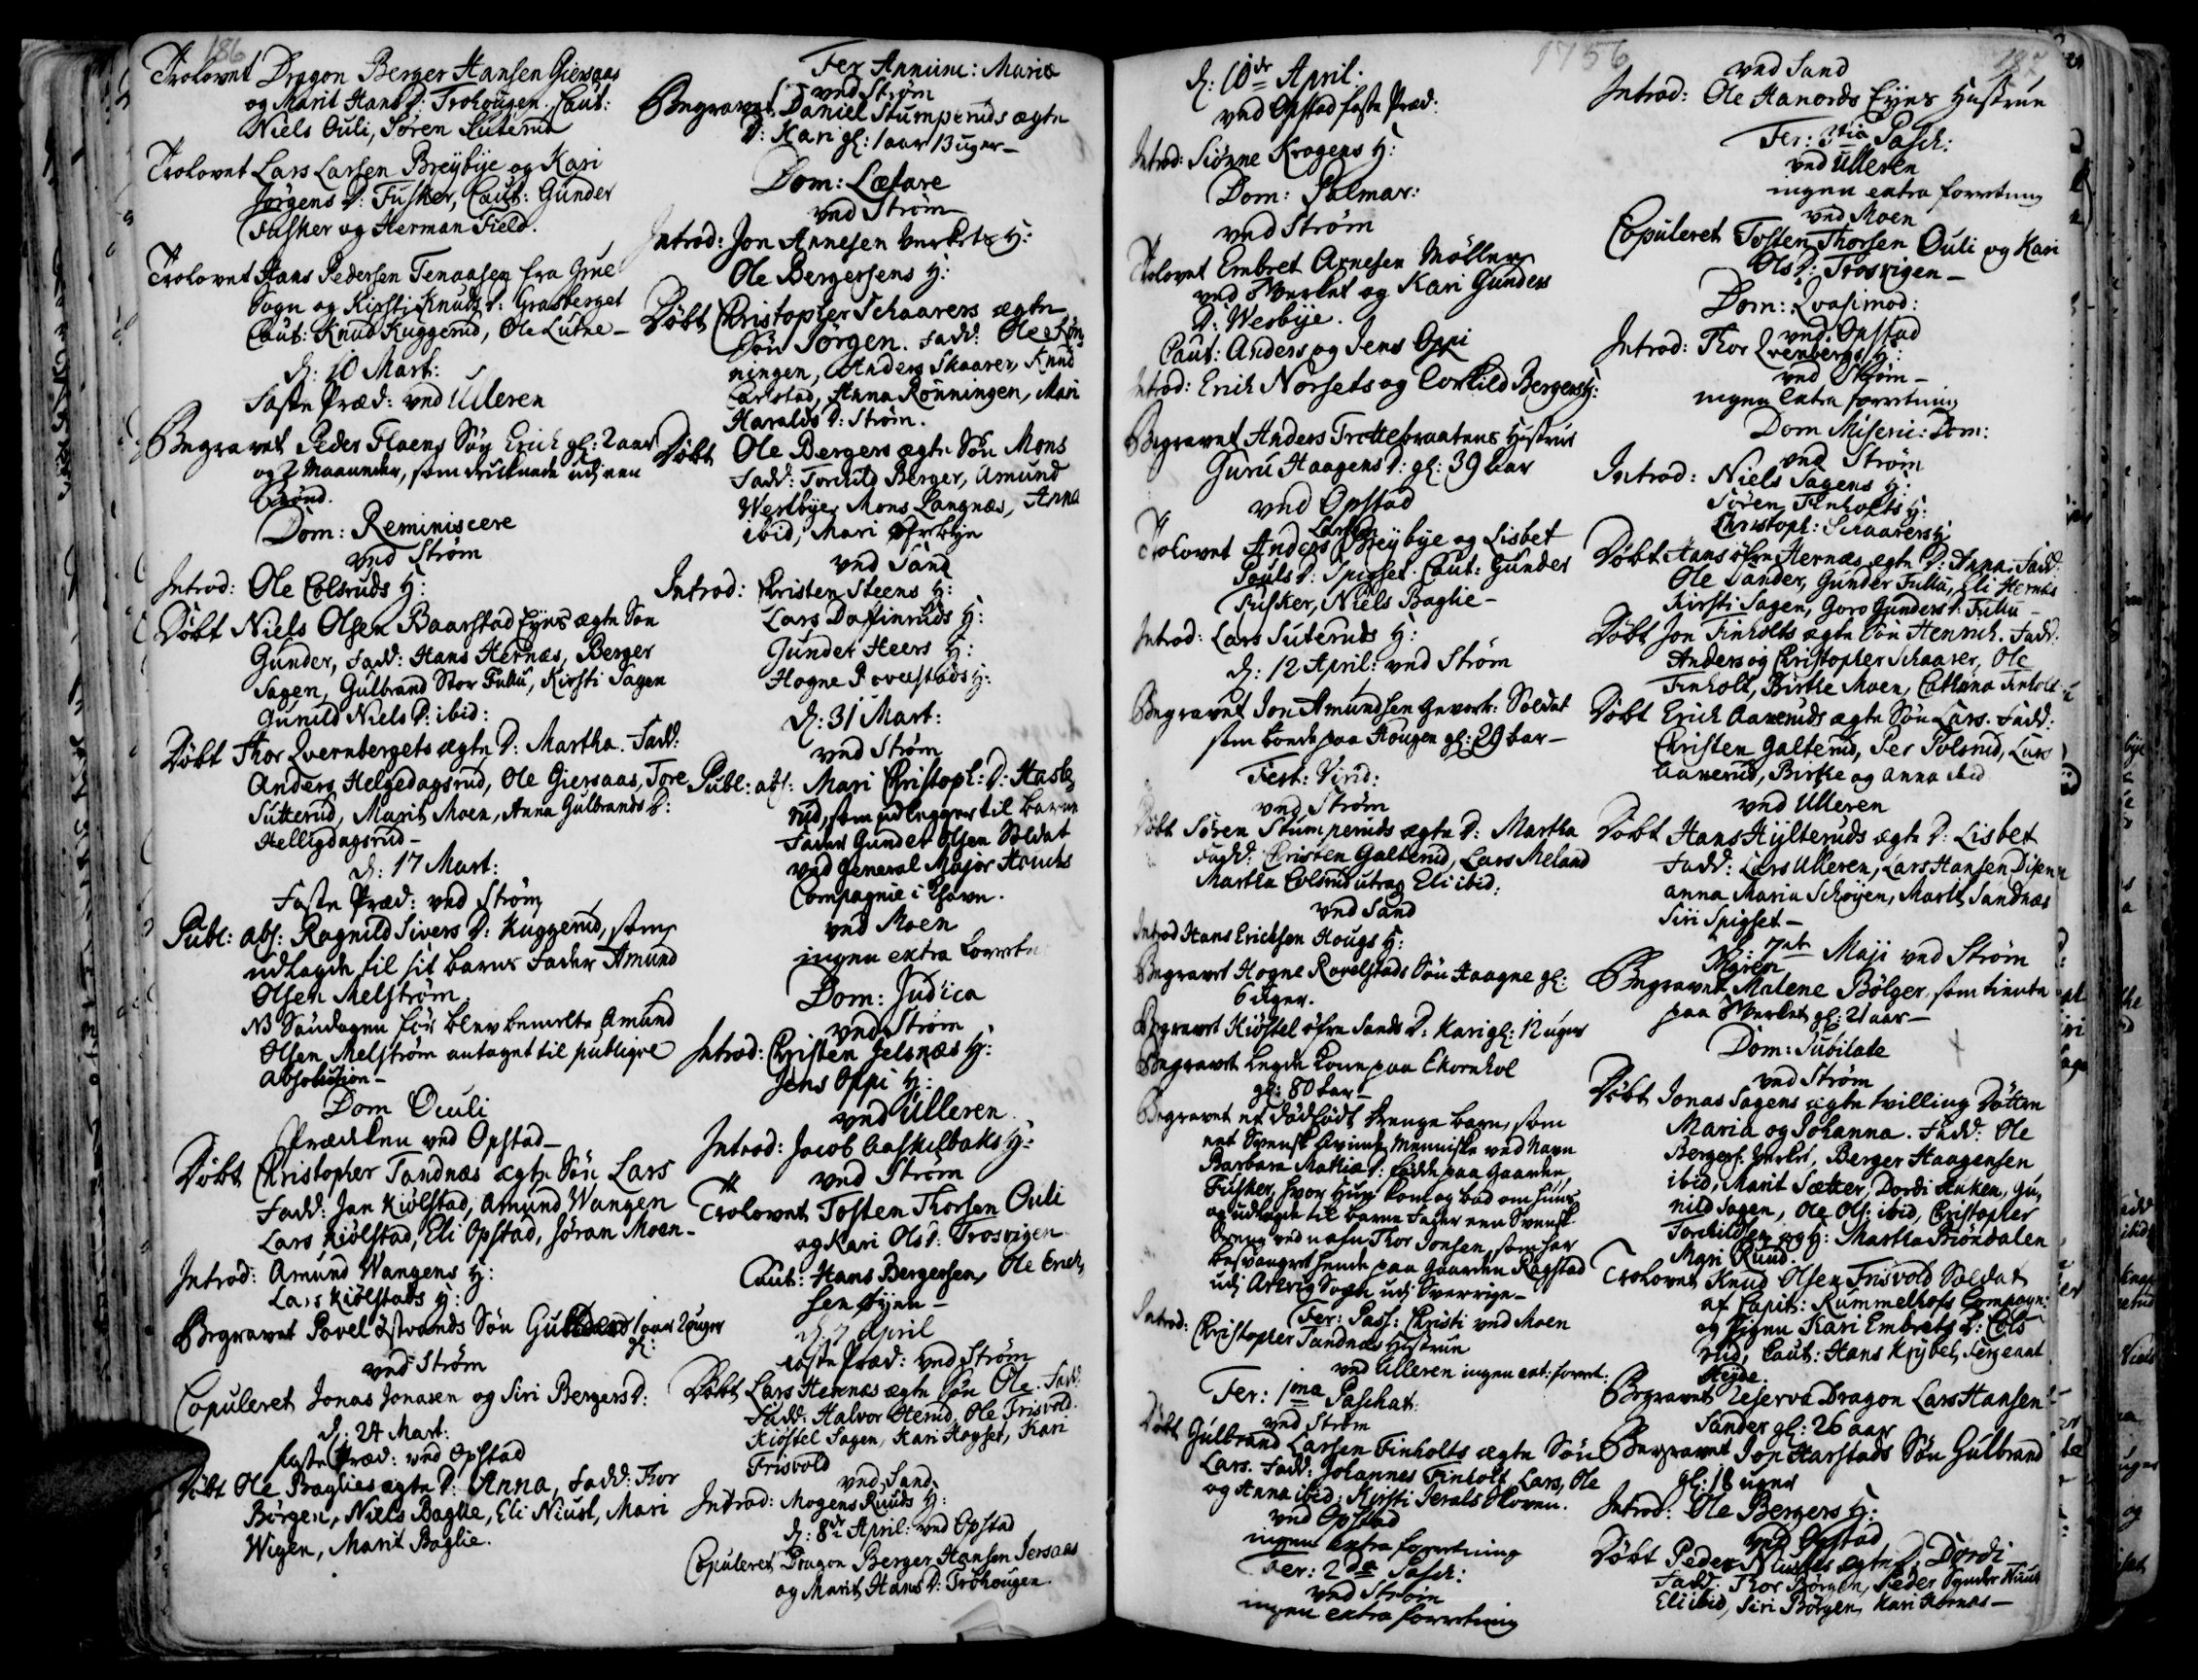 186
Trolovet Dragon Berger Hansen Giersaas
og Marit Hans D: Trohougen. Caut:
Niels Ouli, Søren Suterud
Trolovet Lars Larsen Breybye og Kari
Jørgens D: Fusker, Caut: Gunder
Fusker og Herman Field.
Trolovet Hans Pedersen Tenaasen fra Grue
Sogn og Kirsti Knuds D: Grasberget
Caut: Knud Kuggerud, Ole Lutne –
d: 10 Mart:
Faste Præd: ved Ulleren
Begravet Peder Floens Søn Erich gl: 2 aar
og 2 Maaneder, som druknede udj een
Brønd.
Dom: Reminiscere
ved Strøm
Introd: Ole Colsruds H:
Døbt Niels Olsen Baarstad Eyes ægte Søn
Gunder, Fadd: Hans Hernæs, Berger
Sagen, Gulbrand Stor Fuliu, Kirsti Sagen
Gunild Niels D: ibid:
Døbt Thor Qvernbergets ægte D: Martha. Fadd:
Anders Helgedagsrud, Ole Giersaas, Tore
Sutterud, Marit Moen, Anna Gulbrands D:
Helligdagsrud –
d: 17 Mart:
Faste Præd: ved Strøm
Publ: abs: Ragnild Sivers D: Kuggerud, som
udlagde til sit barns Fader Amund
Olsen Melstrøm
NB Søndagen før blev bemelte Amund
Olsen Melstrøm antaget til publique
Absolution –
Dom Oculi
Prædiken ved Opstad –
Døbt Christopher Tandnæs ægte Søn Lars
Fadd: Jan Kiølstad, Amund Wangen
Lars Kiølstad, Eli Opstad, Jøran Moen –
Introd: Amund Wangens H:
Lars Kiølstads H:
Begravet Povel Østvands Søn 1 aar 2 uger
gl:
ved Strøm
Copuleret Jonas Jonasen og Siri Bergers D:
d: 24 Mart:
Faste Præd: ved Opstad
Døbt Ole Baglies ægte D: Anna, Fadd: Thor
Børgen, Niels Baglie, Eli Niust, Mari
Wigen, Marit Baglie.
Fer Annunc: Mariæ
ved Strøm
Begravet Daniel Stumperuds ægte
D: Kari gl: 1 aar 13 uger –
Dom: Lætare
ved Strøm
Introd: Jon Annesen Verkets H:
Ole Bergersens H:
Døbt Christopher Schaarers ægte
Søn Jørgen. Fadd: Ole Røn-
ningen, Anders Skaarer, Knud
Carlstad, Anna Rønningen, Mari
Haralds D: Strøm.
Døbt Ole Bergers ægte Søn Mons
Fadd: Torkild Berger, Amund
Westbye, Mons Langnæs, Anna
ibid, Mari
ved Sand
Introd: Christen Steens H:
Lars Daffinruds H:
Gunder Heers H:
Hogne Rovelstads H:
d: 31 Mart:
ved Strøm
Publ: abs: Mari Christoph: D: Hasle
rud, som udlegger til barne
Fader Gunder Olsen Soldat
ved General Major Houchs
Compagnie i Khavn.
ved Moen
ingen extra forretn
Dom: Judica
ved Strøm
Introd: Christen Jelsnæs H:
Jens Oppi H:
ved Ulleren
Introd: Jacob Aaskilbaks H:
ved Strøm
Trolovet Tosten Thorsen Ouli
og Kari Ols D: Trosvigen
Caut: Hans Bergersen, Ole Erich
sen Eyen –
d: 7 April
Faste Præd: ved Strøm
Døbt Lars Hernæs ægte Søn Ole. Fadd:
Fadd: Halvor Herud, Ole Frisvold.
Kiøstel Sagen, Kari Høyset, Kari
Frisvold
ved Sand
Introd: Mogens Ruuds H:
d: 8de April: ved Opstad
Copuleret Dragon Berger Hansen Jersaas
og Marit Hans D: Trohougen.
1756
d: 10de April:
ved Opstad faste Præd:
Introd: Siønne Krogens H:
Dom: Palmar:
ved Strøm
Trolovet Embret Arnesen Møller
ved Werket og Kari Gunders
D: Wesbye.
Caut: Anders og Jens Oppi
Introd: Erich Norsets og Torkild Bergens H:
Begravet Anders Trøttebraatens Hustrue
Guru Haagens D: gl: 39 Aar
ved Opstad
Larsen
Trolovet Anders Breybye og Lisbet
Pouls D: Spigset. Caut: Gunder
Fusker, Niels Baglie –
Introd: Lars Suteruds H:
d: 12 April: ved Strøm
Begravet Jon Amundsen Gevorb: Soldat
som boede paa Hougen gl: 29 Aar –
Fest: Virid:
ved Strøm
Døbt Søren Stumperuds ægte D: Martha
Fadd: Christen Galterud, Lars Meland
Martha Colsrud Eli ibid:
ved Sand
Introd Hans Erichsen Hougs H:
Begravet Hogne Rovelstads Søn Haagne gl:
6 uger.
Begravet Kiøstel øfre Sands D: Kari gl: 12 uger
Begravet Legde kone paa Ekornhol
gl: 80 Aar –
Begravet et dødfødt Drenge barn, som
eet Svensk Qvinde Menniske ved Navn
Barbara Mathia D: fødde paa Gaarden
Fusker, hvor Hun kom og bad om huus
og udlagde til barne Fader een Svensk
dreng ved nafn Thor Jonsen, som har
besvangret hende paa Gaarden Ragstad
udj Arvig Sogn udj Sverrige –
Fer: Pass: Christi ved Moen
Introd: Christopher Tandnæs Hustrue
ved Ulleren ingen ext: forret:
Fer: 1ma Paschat:
ved Strøm
Døbt Gulbrand Larsen Finholts ægte Søn
Lars. Fadd: Johannes Finholt, Lars, Ole
og Anna ibid, Kirsti Skoven.
ved Opstad
ingen extra forretning
Fer: 2da Pasch:
ved Strøm
ingen extra forretning
187
ved Sand
Introd: Ole Hanords Eyes Hustrue
Fer: 3tia Pasch:
ved Ulleren
ingen extra forretning
ved Moen
Copuleret Tosten Thorsen Ouli og Kari
Ols D: Trosvigen –
Dom: Qvasimod:
ved Opstad
Introd: Thor Qvenbergs H:
ved Strøm –
ingen Extra forretning
Dom Miseric: Dom:
ved Strøm
Introd: Niels Sagens H:
Søren Finholts H:
Christoph: Schaarers H:
Døbt Hans øfre Hernæs ægte D: Anna. Fadd.
Ole Sander, Gunder Fuliu, Eli Hernæs
Kirsti Sagen, Goro Gunders D: Fuliu –
Døbt Jon Finholts ægte Søn Henrich. Fadd:
Anders og Christopher Schaarer, Ole
Finholt, Birthe Moen, Cathrina Finholt
Døbt Erich Aaneruds ægte Søn Lars. Fadd:
Christen Galterud, Per Polsrud, Lars
Aanerud, Birthe og Anna ibid
ved Ulleren
Døbt Hans Hylteruds ægte D: Lisbet
Fadd: Lars Ulleren, Lars Hansen Disen
Anna Maria Schøyen, Marte Sandnæs
Siri Spigset –
d: 7de Maji ved Strøm
Begravet Malene Bølger, som tiente
paa Werket gl: 21 aar –
Dom: Jubilate
ved Strøm
Døbt Jonas Sagens ægte tvilling Døttre
Maria og Johanna. Fadd: Ole
Bergers: Verket, Berger Haagensen
ibid, Marit Sætter, Dordi Huken, Gu-
nild Sagen, Ole Ols: ibid, Christopher
Torkildsen og H: Martha Brøndalen
Mari Ruud.
Trolovet Knud Olsen Frisvold Soldat
af Capit: Rummelhofs Compagn:
og Pigen Kari Embrets D: Cols
rud, Caut: Hans Krybel, Sergeant
Heyde.
Begravet Reserve Dragon Lars Hansen
Sander gl: 26 aar
Begravet Jon Harstads Søn Gulbrand
gl: 18 uger
Introd: Ole Bergers H:
ved Opstad
Døbt Peder Niusts ægte D: Dordi
Fadd: Thor Børgen, Peder Niust
Eli ibid, Siri Børgen, Kari Hornæs –